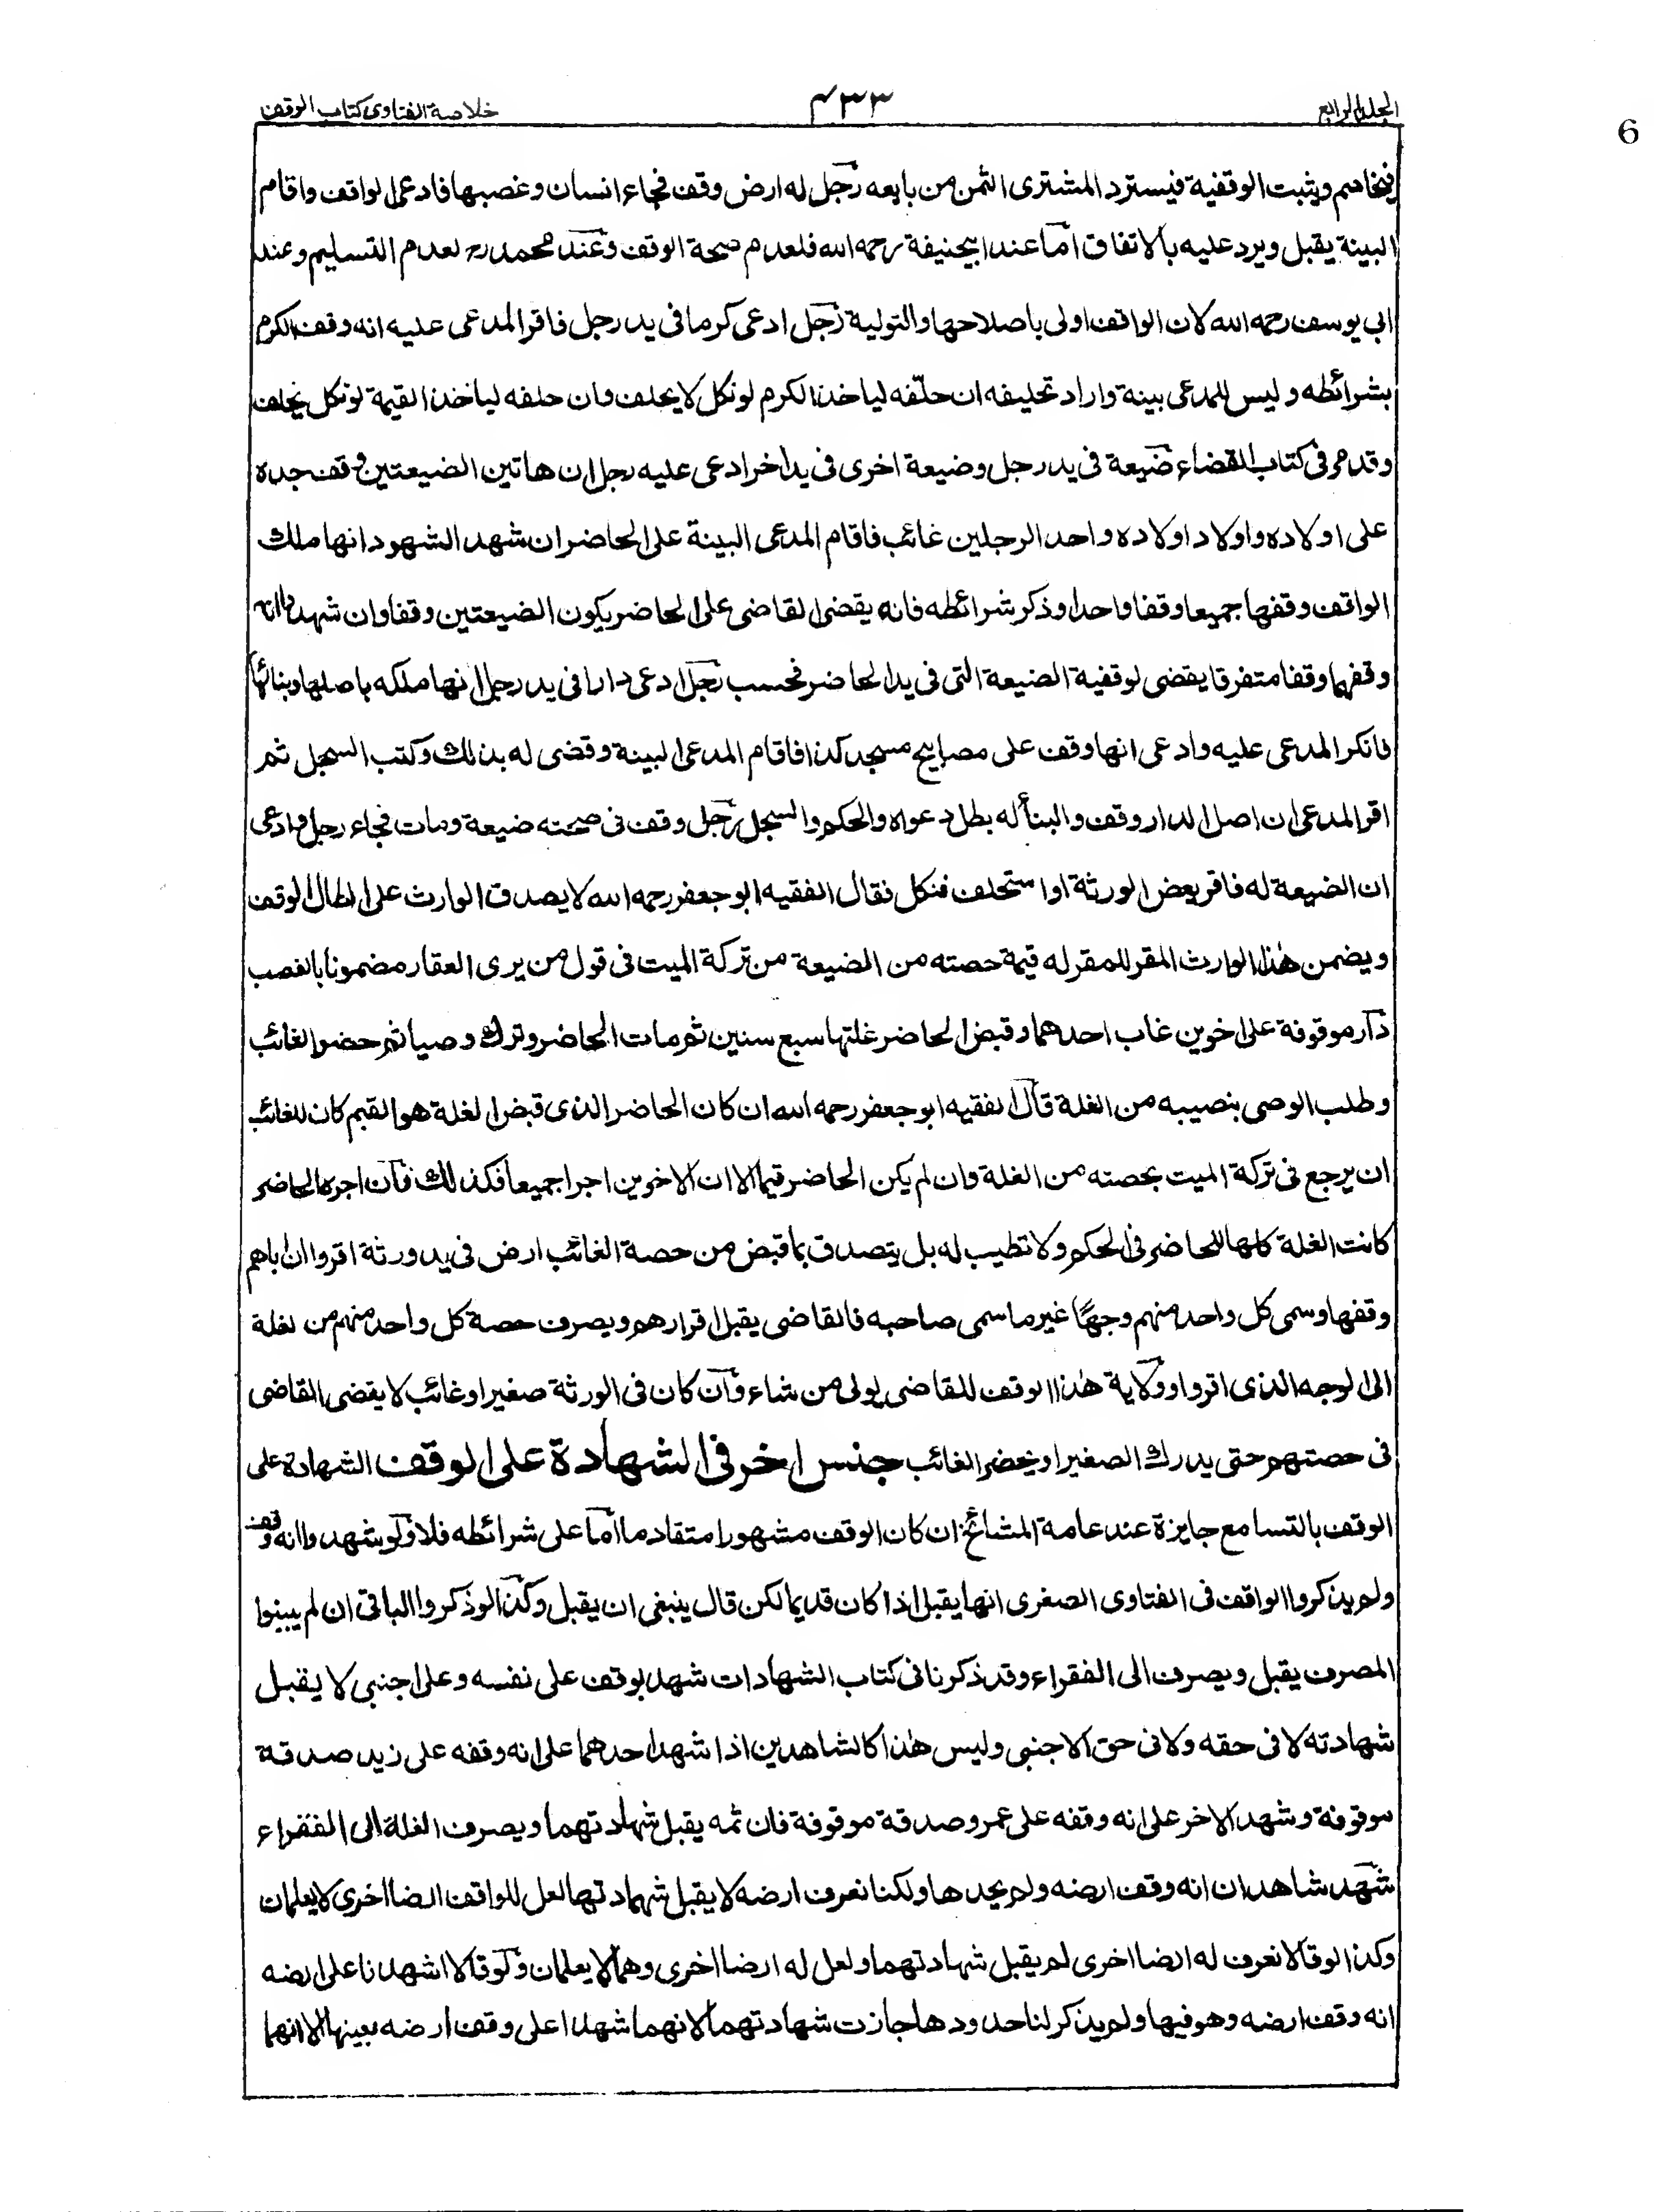 الجلد الرابع
۴۳۳
خلاصة الفتاوى كتاب الوقف
6
فيخاصم ويثبت الوقفية فيسترد المشترى الثمن من بايعه رجل له ارض وقف فجاء انسان وغصبها فادعى الواقف واقام
البينة يقبل ويرد عليه بالاتفاق اما عند ابيحنيفة رحمه الله فلعدم صحة الوقف وعند محمد رح لعدم التسليم وعند
ابى يوسف رحمه الله لان الواقف اولى باصلاحها والتولية رجل ادعى كرما فى يد رجل فاقر المدعى عليه انه وقف الكرم
بشرائطه وليس للمدعى بينة واراد تحليفه ان حلّفه لياخذ الكرم لو نكل لا يحلف وان حلفه لياخذ القيمة لو نكل يحلف
وقد مر فى كتاب القضاء ضيعة فى يد رجل وضيعة اخرى فى يد اخر ادعى عليه رجل ان هاتين الضيعتين وقف جده
على اولاده واولاد اولاده واحد الرجلين غائب فاقام المدعى البينة على الحاضر ان شهد الشهود انها ملك
الواقف وقفها جميعا وقفا واحدا وذكر شرائطه فانه يقضى القاضى على الحاضر بكون الضيعتين وقفا وان شهدوا انه
وقفهما وقفا متفرقا يقضى لوقفية الضيعة التى فى يد الحاضر فحسب رجل ادعى دارا فى يد رجل انها ملكه باصلها وبنائها
فانكر المدعى عليه وادعى انها وقف على مصابيح مسجد كذا فاقام المدعى البينة وقضى له بذلك وكتب السجل ثم
اقر المدعى ان اصل الدار وقف والبناء له بطل دعواه والحكم والسجل رجل وقف فى صحته ضيعة ومات فجاء رجل وادعى
ان الضيعة له فاقر بعض الورثة او استحلف فنكل فقال الفقيه ابو جعفر رحمه الله لا يصدق الوارث على ابطال الوقف
ويضمن هذا الوارث المقر للمقر له قيمة حصته من الضيعة من تركة الميت فى قول من يرى العقار مضمونا بالغصب
دار موقوفة على اخوين غاب احدهما وقبض الحاضر غلتها سبع سنين ثم مات الحاضر وترك وصيا ثم حضر الغائب
وطلب الوصى بنصيبه من الغلة قال الفقيه ابو جعفر رحمه الله ان كان الحاضر الذى قبض الغلة هو القيم كان للغائب
ان يرجع فى تركة الميت بحصته من الغلة وان لم يكن الحاضر قيما الا ان الاخوين اجرا جميعا فكذلك فان اجره الحاضر
كانت الغلة كلها للحاضر فى الحكم ولا تطيب له بل يتصدق بما قبض من حصة الغائب ارض فى يد ورثة اقروا ان اباهم
وقفها وسمى كل واحد منهم وجها غير ما سمى صاحبه فالقاضى يقبل اقرارهم ويصرف حصة كل واحد منهم من لغلة
الى الوجه الذى اقروا وولاية هذا الوقف للقاضى يولى من شاء وان كان فى الورثة صغير او غائب لا يقضى القاضى
فى حصتهم حتى يدرك الصغير او يحضر الغائب جنس اخر فى الشهادة على الوقف الشهادة على
الوقف بالتسامع جايزة عند عامة المشائخ ان كان الوقف مشهورا متقادما اما على شرائطه فلا ولو شهدوا انه وقف
ولم يذكروا الواقف فى الفتاوى الصغرى انها يقبل اذا كان قديما لكن قال ينبغى ان يقبل وكذا لو ذكروا الباقى ان لم يبينوا
المصرف يقبل ويصرف الى الفقراء وقد ذكرنا فى كتاب الشهادات شهد بوقف على نفسه وعلى اجنبى لا يقبل
شهادته لا فى حقه ولا فى حق الاجنبى وليس هذا كالشاهدين اذا شهد احدهما على انه وقفه على زيد صدقة
موقوفة وشهد الاخر على انه وقفه على عمرو صدقة موقوفة فان ثمه يقبل شهادتهما ويصرف الغلة الى الفقراء
شهد شاهدان انه وقف ارضه ولم يحدها ولكنا نعرف ارضه لا يقبل شهادتهما لعل للواقف ارضا اخرى لا يعلمان
وكذا لو قالا نعرف له ارضا اخرى لم يقبل شهادتهما ولعل له ارضا اخرى وهما لا يعلمان ولو قالا اشهدنا على ارضه
انه وقف ارضه وهو فيها ولم يذكر لنا حدودها جازت شهادتهما لانهما شهدا على وقف ارضه بعينها الا انهما